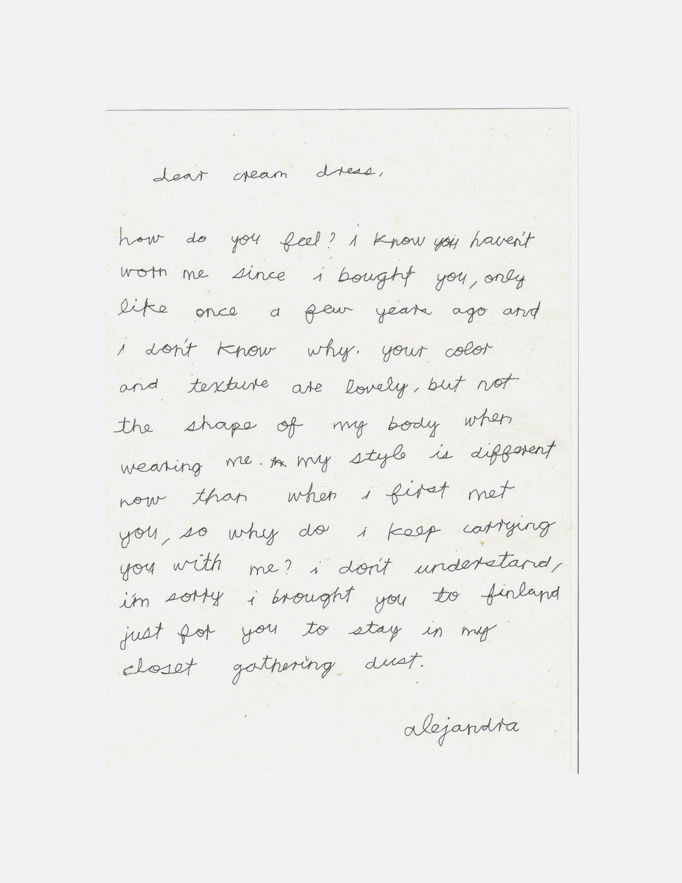 dear cream dress,
how do you feel? i know you haven't
worn me since i bought you, only
like once a few years ago and
i don't know why. your color
and texture are lovely, but not
the shape of my body when
wearing me. my style is different
now than when i first met
you, so why do i keep carrying
you with me? i don't understand,
i'm sorry i brought you to finland
just for you to stay in my
closet gathering dust.
alejandra